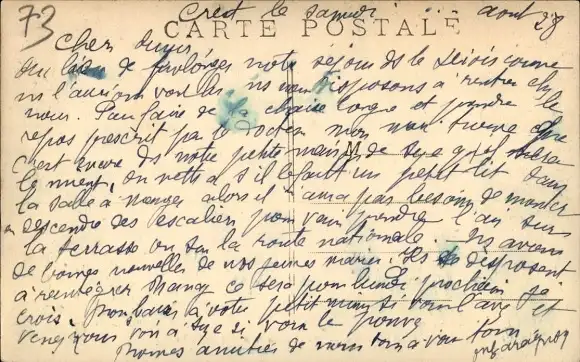 73
Crest le samedi août 28
CARTE POSTALE
Chers amis
Au lieu de prolonger notre séjour ds le Diois comme
ns l'aurions voulu ns nous disposons à rentrer chez
nous. Pour faire de la chaise longue et prendre le
repos prescrit par le docteur mon mari trouve que
c'est encore ds notre petite maison de Dye qu'il sera
le mieux, on mettra s'il le faut un petit lit dans
la salle à manger alors il n'aura pas besoin de monter
et descendre des escaliers pour venir prendre l'air sur
la terrasse ou sur la route nationale. ns avons
de bonnes nouvelles de nos jeunes mariés. Ils se disposent
à réintégrer Nancy ce sera pour lundi prochain je
crois. Bon baiser à votre petit
venez nous voir à Dye si vous le pouvez
Bonnes amitiés de nous tous à vous tous